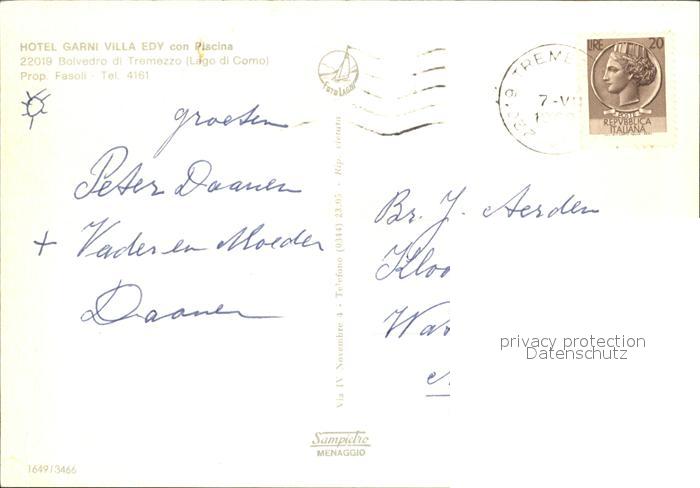 HOTEL GARNI VILLA EDY con Piscina
22019 Bolvedro di Tremezzo (Lago di Como)
Prop. Fasoli - Tel. 4161
groeten
Peter Daanen
+ Vader en Moeder
Daanen
FOTO LAGHI
Via IV Novembre 4 - Telefono (0344) 23.05 - Rip. vietata
Sampietro
MENAGGIO
16491/3466
22019 TREME
7-VII
LIRE 20
POSTE
REPVBBLICA
ITALIANA
Br. J. Aerden
Kloo
Wa
privacy protection
Datenschutz